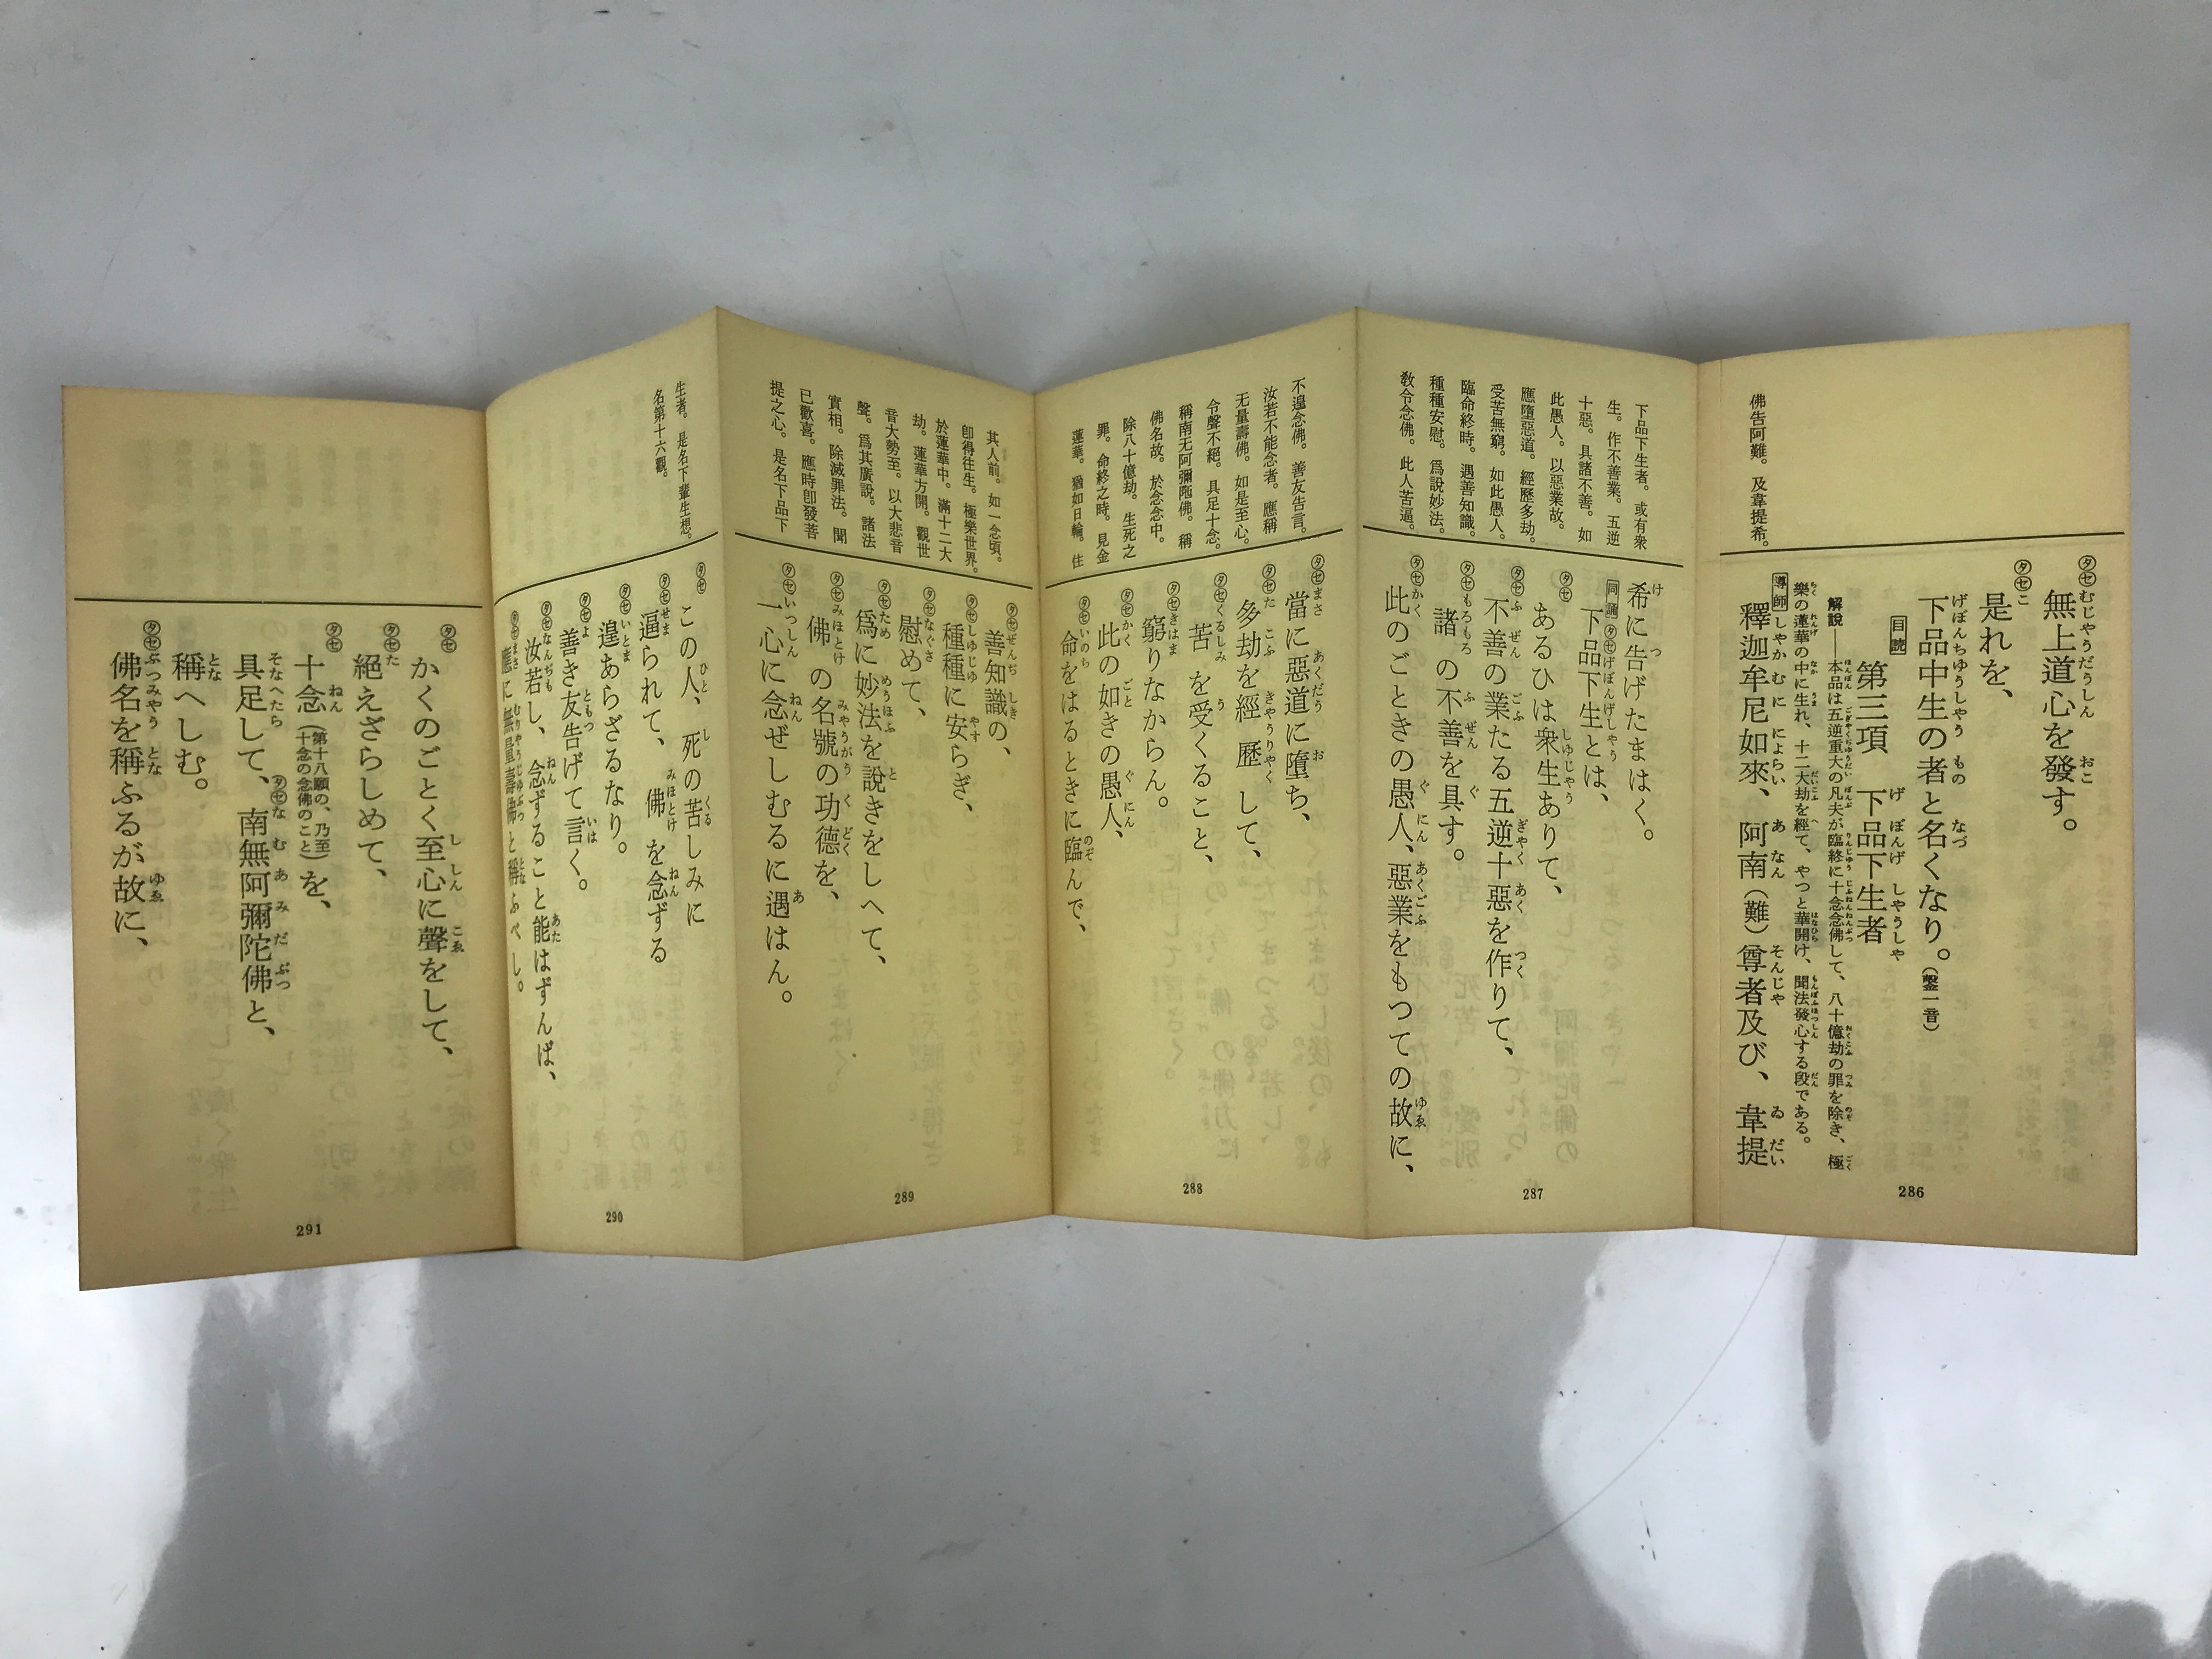 佛告阿難。及韋提希。
㋟㋝無上道心を發す。
㋟㋝是れを、
下品中生の者と名くなり。(磬一音)
目読
第三項　下品下生者
解說――本品は五逆重大の凡夫が臨終に十念念佛して、八十億劫の罪を除き、極
樂の蓮華の中に生れ、十二大劫を經て、やつと華開け、聞法發心する段である。
導師 釋迦牟尼如來、阿南(難)尊者及び、韋提
286
下品下生者。或有衆
生。作不善業。五逆
十惡。具諸不善。如
此愚人。以惡業故。
應墮惡道。經歷多劫。
受苦無窮。如此愚人。
臨命終時。遇善知識。
種種安慰。爲說妙法。
敎令念佛。此人苦逼。
希に告げたまはく。
同誦 ㋟㋝下品下生とは、
㋟㋝あるひは衆生ありて、
㋟㋝不善の業たる五逆十惡を作りて、
㋟㋝諸の不善を具す。
㋟㋝此のごときの愚人、惡業をもつての故に、
287
不遑念佛。善友告言。
汝若不能念者。應稱
无量壽佛。如是至心。
令聲不絕。具足十念。
稱南无阿彌陁佛。稱
佛名故。於念念中。
除八十億劫。生死之
罪。命終之時。見金
蓮華。猶如日輪。住
㋟㋝當に惡道に墮ち、
㋟㋝多劫を經歷して、
㋟㋝苦を受くること、
㋟㋝窮りなからん。
㋟㋝此の如きの愚人、
㋟㋝命をはるときに臨んで、
288
其人前。如一念頃。
卽得往生。極樂世界。
於蓮華中。滿十二大
劫。蓮華方開。觀世
音大勢至。以大悲音
聲。爲其廣說。諸法
實相。除滅罪法。聞
已歡喜。應時卽發菩
提之心。是名下品下
㋟㋝善知識の、
㋟㋝種種に安らぎ、
㋟㋝慰めて、
㋟㋝爲に妙法を說きをしへて、
㋟㋝佛の名號の功德を、
㋟㋝一心に念ぜしむるに遇はん。
289
生者。是名下輩生想。
名第十六觀。
㋟㋝この人、死の苦しみに
㋟㋝逼られて、佛を念ずる
㋟㋝遑あらざるなり。
㋟㋝善き友告げて言く。
㋟㋝汝若し、念ずること能はずんば、
㋟㋝應に無量壽佛と稱ふべし。
290
㋟㋝かくのごとく至心に聲をして、
㋟㋝絕えざらしめて、
㋟㋝十念(第十八願の、乃至十念の念佛のこと)を、
具足して、㋟㋝南無阿彌陀佛と、
稱へしむ。
㋟㋝佛名を稱ふるが故に、
291